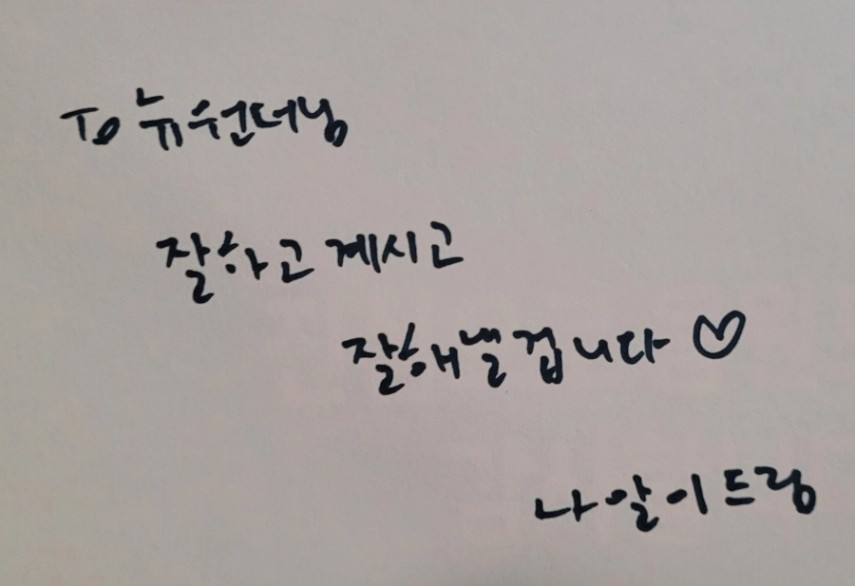 To 뉴원더님
잘하고 계시고
잘해낼 겁니다 ♡
나알이 드림